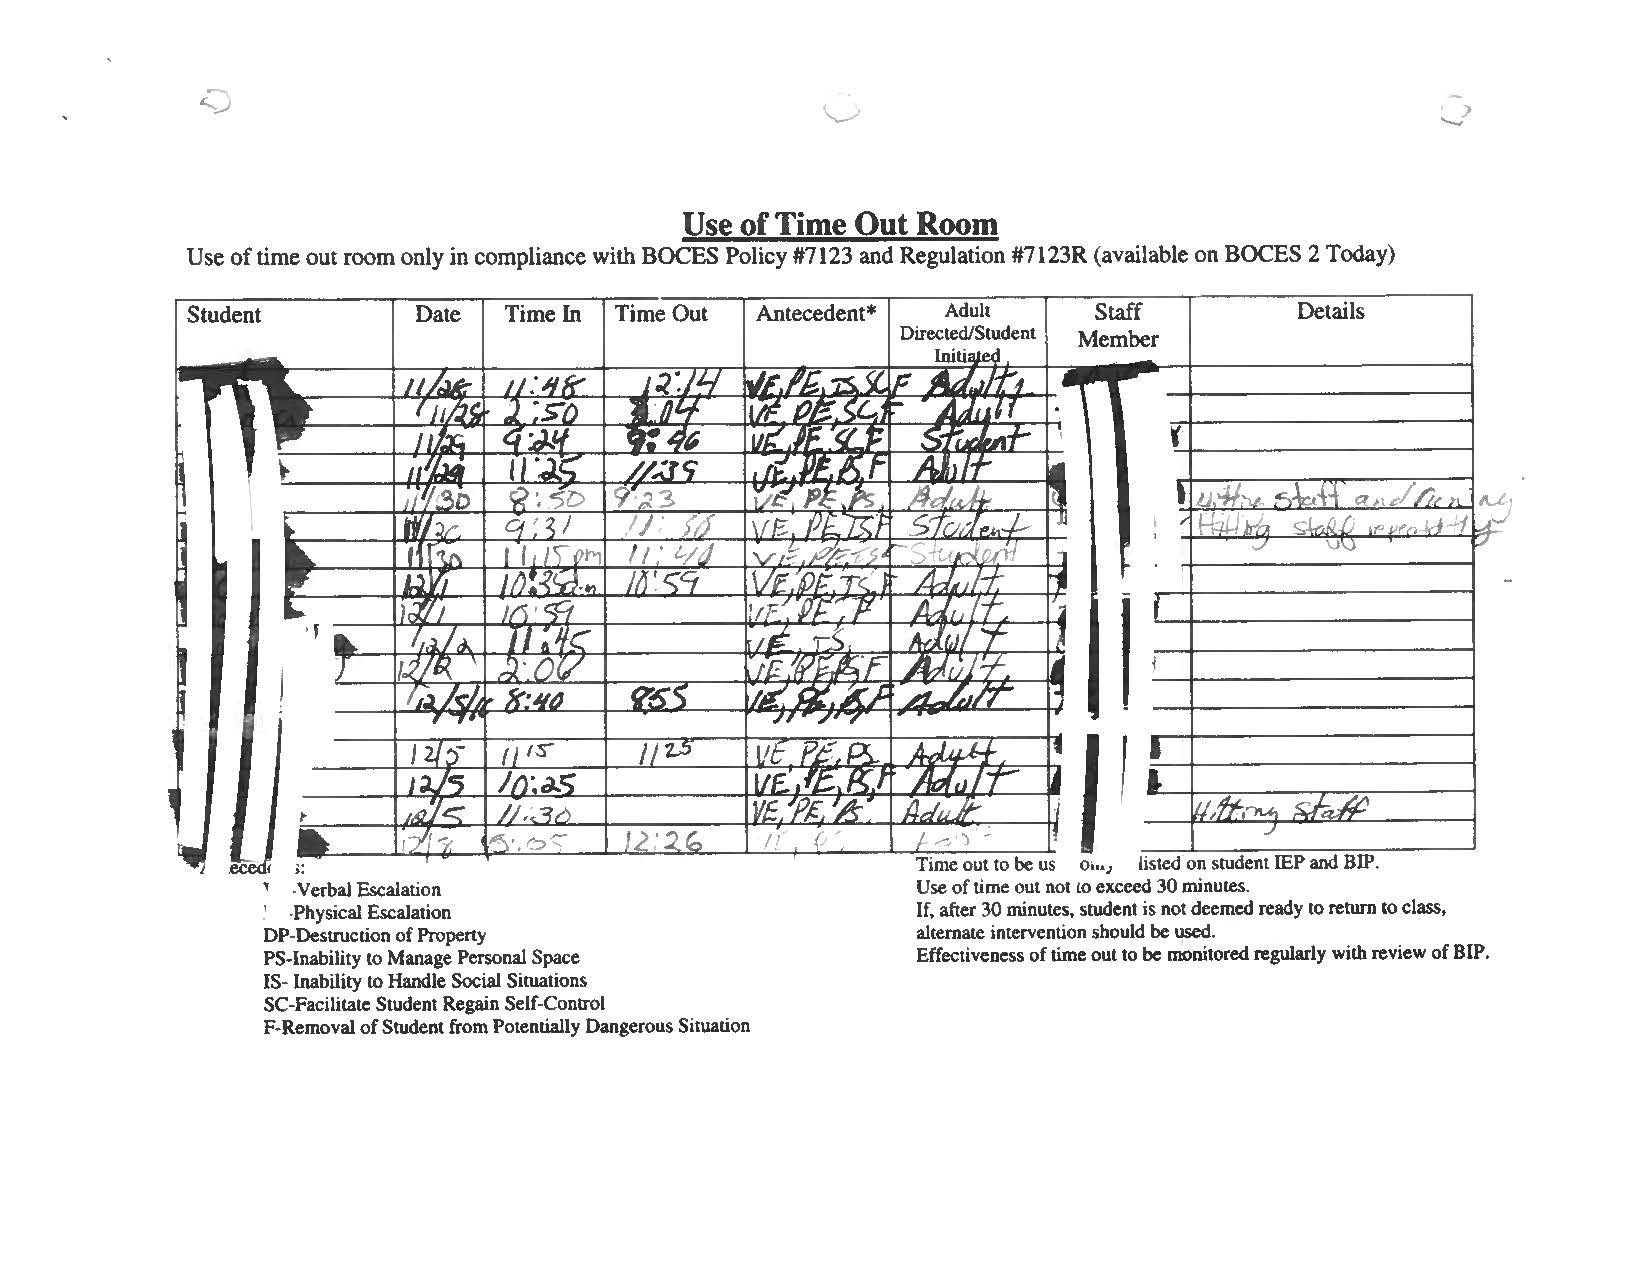 Use of Time Out Room
Use of time out room only in compliance with BOCES Policy #7123 and Regulation #7123R (available on BOCES 2 Today)
Student Date Time In Time Out Antecedent* Adult Directed/Student Initiated Staff Member Details
11/28 11:48 12:14 VE, PE, IS, SC, F Adult
11/28 2:50 3:04 VE, PE, SC, F Adult
11/29 9:24 9:46 VE, PE, SC, F Student
11/29 11:25 11:39 VE, PE, PS, F Adult
11/30 8:50 9:23 VE, PE, PS, Adult staff and
11/30 9:31 VE, PE, IS F Student Hitting staff repeatedly
11/30 11:15 pm 11:40 VE, PE, IS F Student
12/1 10:35 10:59 VE, PE, IS, F Adult
12/1 10:59 VE, PE, F Adult
12/2 11:45 VE, IS, Adult
12/2 2:06 VE, PE, PS F Adult
12/5/16 8:40 855 VE, PE, PS, F Adult
12/5 1115 1125 VE, PE, PS Adult
12/5 10:25 VE, PE, PS, F Adult
12/5 11:30 VE, PE, PS. Adult Hitting staff
12/8 12:26
-Verbal Escalation
-Physical Escalation
DP-Destruction of Property
PS-Inability to Manage Personal Space
IS- Inability to Handle Social Situations
SC-Facilitate Student Regain Self-Control
F-Removal of Student from Potentially Dangerous Situation
Time out to be us listed on student IEP and BIP.
Use of time out not to exceed 30 minutes.
If, after 30 minutes, student is not deemed ready to return to class,
alternate intervention should be used.
Effectiveness of time out to be monitored regularly with review of BIP.